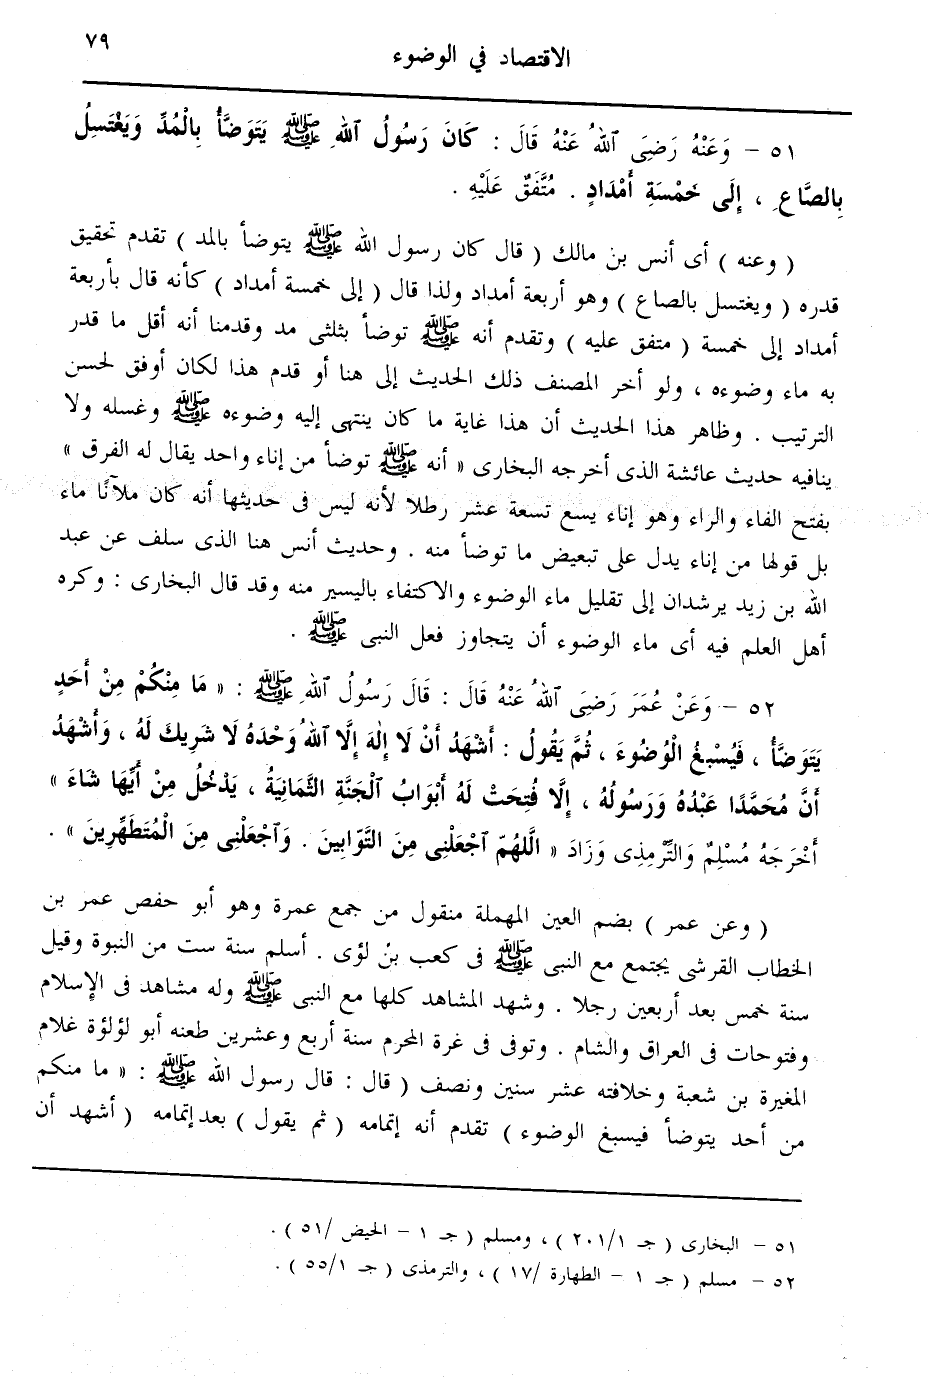 الاقتصاد في الوضوء
٧٩
٥١ – وَعَنْهُ رَضِىَ ٱللهُ عَنْهُ قَالَ : كَانَ رَسُولُ ٱللهِ ﷺ يَتَوَضَّأُ بِالْمُدِّ وَيَغْتَسِلُ
بِالصَّاعِ ، إِلَى خَمْسَةِ أَمْدَادٍ . مُتَّفَقٌ عَلَيْهِ .
( وعنه ) أى أنس بن مالك ( قال كان رسول الله ﷺ يتوضأ بالمد ) تقدم تحقيق
قدره ( ويغتسل بالصاع ) وهو أربعة أمداد ولذا قال ( إلى خمسة أمداد ) كأنه قال بأربعة
أمداد إلى خمسة ( متفق عليه ) وتقدم أنه ﷺ توضأ بثلثى مد وقدمنا أنه أقل ما قدر
به ماء وضوءه ، ولو أخر المصنف ذلك الحديث إلى هنا أو قدم هذا لكان أوفق لحسن
الترتيب . وظاهر هذا الحديث أن هذا غاية ما كان ينتهى إليه وضوءه ﷺ وغسله ولا
ينافيه حديث عائشة الذى أخرجه البخارى « أنه ﷺ توضأ من إناء واحد يقال له الفرق »
بفتح الفاء والراء وهو إناء يسع تسعة عشر رطلا لأنه ليس فى حديثها أنه كان ملآنًا ماء
بل قولها من إناء يدل على تبعيض ما توضأ منه . وحديث أنس هنا الذى سلف عن عبد
الله بن زيد يرشدان إلى تقليل ماء الوضوء والاكتفاء باليسير منه وقد قال البخارى : وكره
أهل العلم فيه أى ماء الوضوء أن يتجاوز فعل النبى ﷺ .
٥٢ – وَعَنْ عُمَرَ رَضِىَ ٱللهُ عَنْهُ قَالَ : قَالَ رَسُولُ ٱللهِ ﷺ : « مَا مِنْكُمْ مِنْ أَحَدٍ
يَتَوَضَّأُ ، فَيُسْبِغُ الْوُضُوءَ ، ثُمَّ يَقُولُ : أَشْهَدُ أَنْ لَا إِلٰهَ إِلَّا ٱللهُ وَحْدَهُ لَا شَرِيكَ لَهُ ، وَأَشْهَدُ
أَنَّ مُحَمَّدًا عَبْدُهُ وَرَسُولُهُ ، إِلَّا فُتِحَتْ لَهُ أَبْوَابُ ٱلْجَنَّةِ الثَّمَانِيَةُ ، يَدْخُلُ مِنْ أَيِّهَا شَاءَ »
أَخْرَجَهُ مُسْلِمٌ وَالتِّرْمِذِى وَزَادَ « اللَّهُمَّ ٱجْعَلْنِى مِنَ التَّوَّابِينَ . وَٱجْعَلْنِى مِنَ الْمُتَطَهِّرِينَ » .
( وعن عمر ) بضم العين المهملة منقول من جمع عمرة وهو أبو حفص عمر بن
الخطاب القرشى يجتمع مع النبى ﷺ فى كعب بنْ لؤى . أسلم سنة ست من النبوة وقيل
سنة خمس بعد أربعين رجلا . وشهد المشاهد كلها مع النبى ﷺ وله مشاهد فى الإسلام
وفتوحات فى العراق والشام . وتوفى فى غرة المحرم سنة أربع وعشرين طعنه أبو لؤلؤة غلام
المغيرة بن شعبة وخلافته عشر سنين ونصف ( قال : قال رسول الله ﷺ : « ما منكم
من أحد يتوضأ فيسبغ الوضوء ) تقدم أنه إتمامه ( ثم يقول ) بعد إتمامه ( أشهد أن
٥١ – البخارى ( جـ ١/٢٠١ ) ، ومسلم ( جـ ١ – الحيض /٥١ ) .
٥٢ – مسلم ( جـ ١ – الطهارة /١٧ ) ، والترمذى ( جـ ١/٥٥ ) .